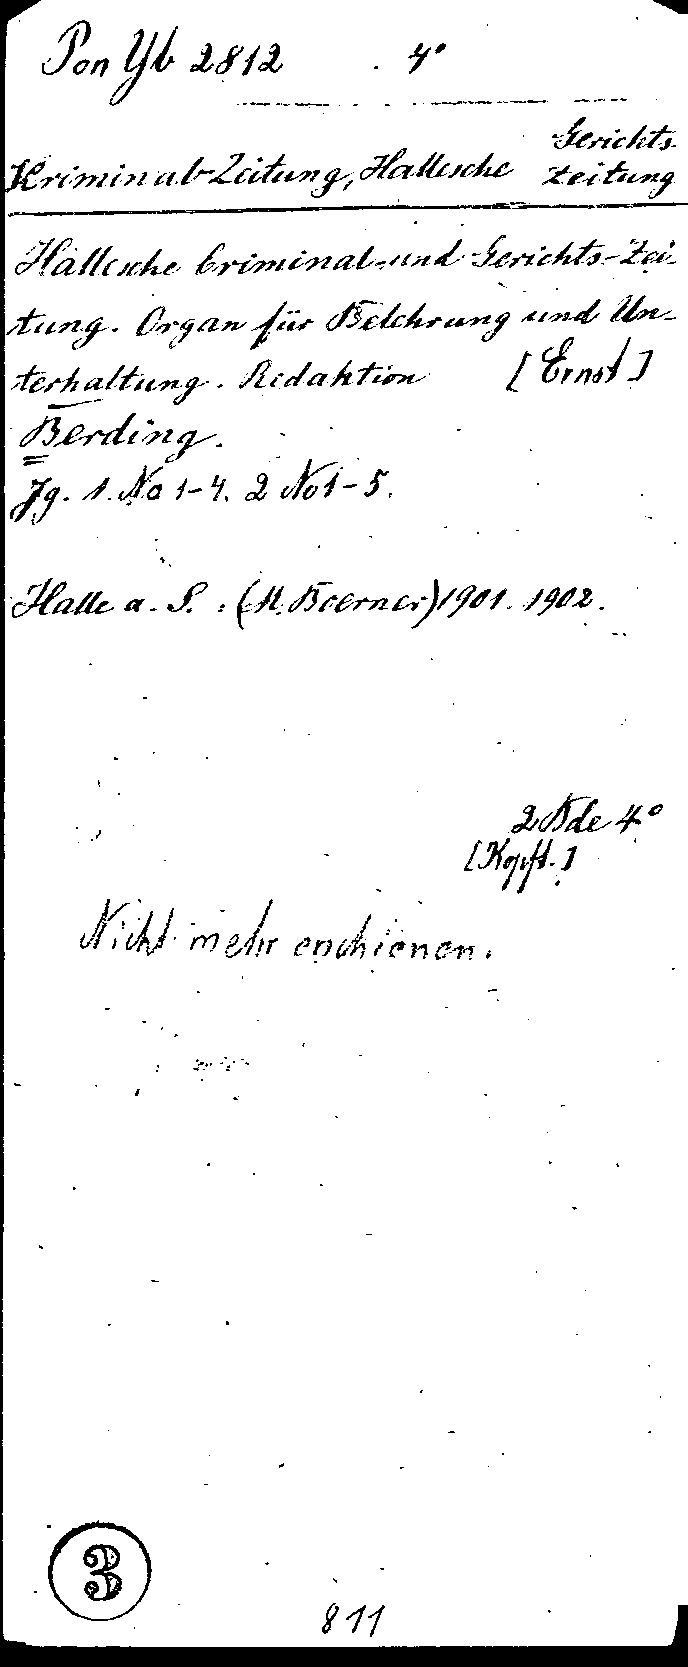 Pon Yb 2812 4°
Gerichts-
Kriminal-Zeitung, Hallesche Zeitung
Hallesche Criminal- und Gerichts-Zei-
tung. Organ für Belehrung und Un-
terhaltung. Redaktion [Ernst]
Berding.
Jg. 1. No 1-4. 2 No 1-5.
Halle a. S. : (M. Boerner) 1901. 1902.
2 Bde 4°
[Kopft.]
Nicht mehr erschienen.
3
811